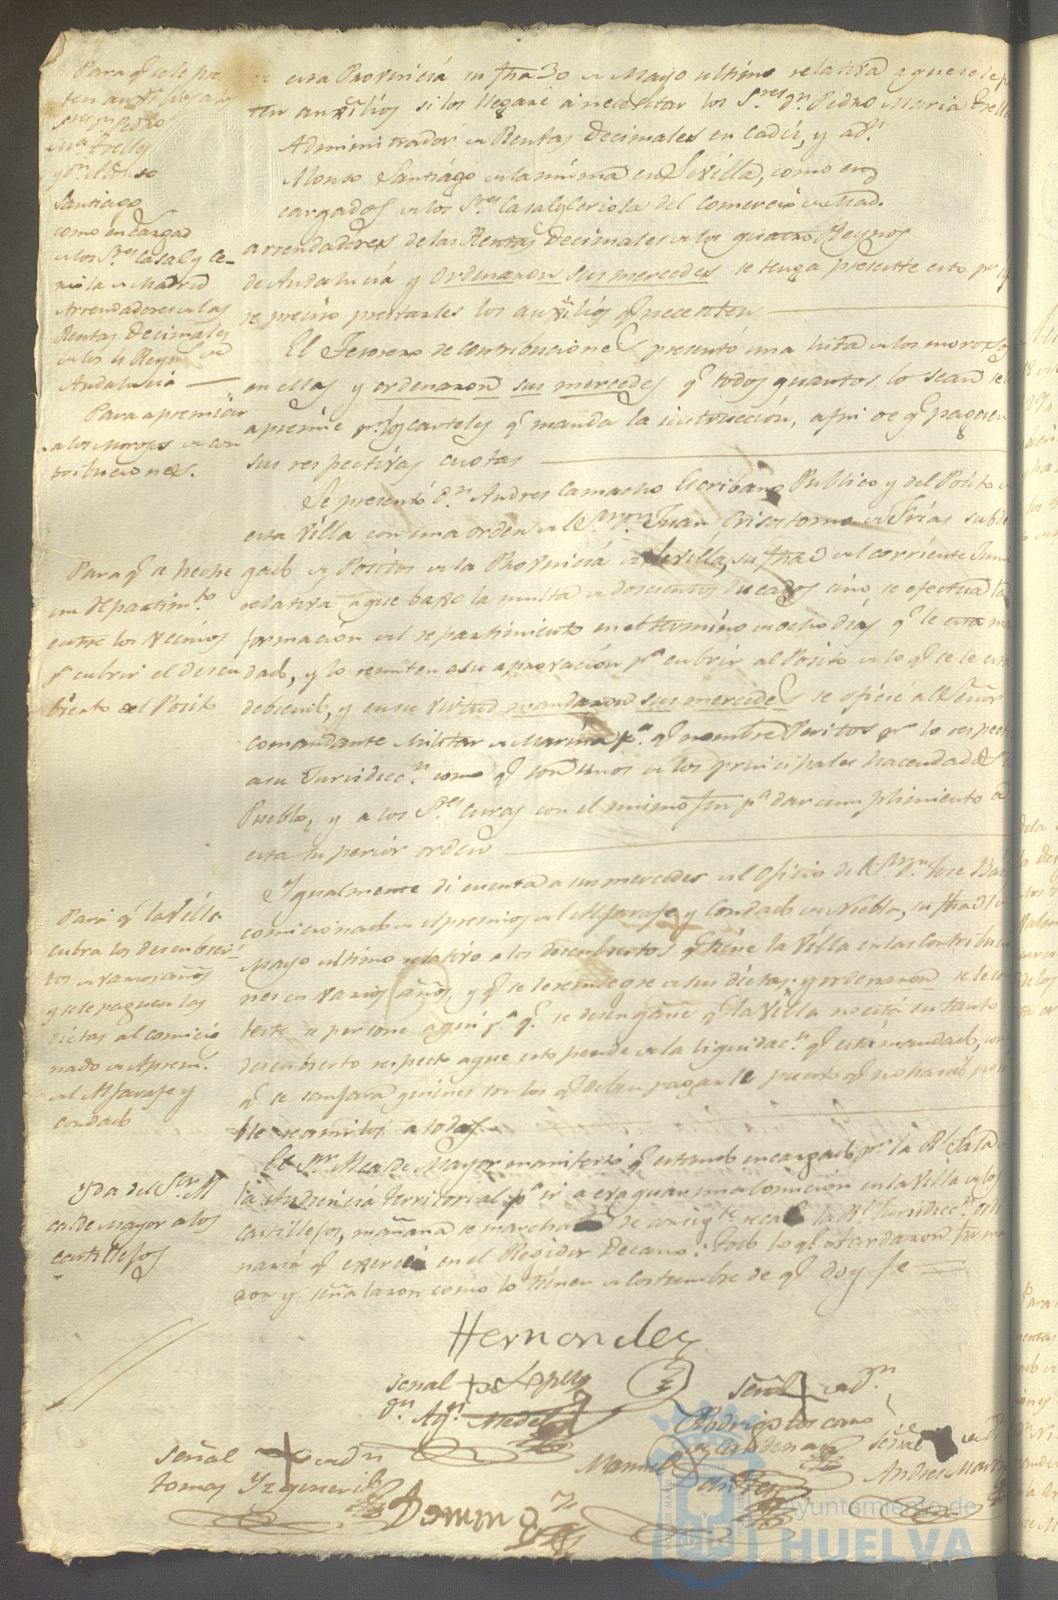 Para q.e se le pres
ten auxilios a los
S.res D.n Pedro
M.a Trelles
y D.n Alonso
Santiago
como encargad
de los S.res Casal y Ce-
riola de Madrid
Arrendadores de las
Rentas Decimales
de los 4 Reynos de
Andalucia
Para apremiar
a los Morosos de con
tribuciones.
Para q.e se heche
un Repartim.to
entre los vecinos
p.a cubrir el descu
bierto del Posito
Para q.e la Villa
cubra los descubier
tos de varios años
y se le paguen las
dietas al comicio
nado de Aprem.s
del Aljarafe y
condado
Yda del S.or Al
calde mayor a los
castillejos
de esta Provincia su fha 30 de Mayo ultimo relativa a que se le pres
ten auxilios si los llegare a necesitar los S.res D.n Pedro Maria Trelles
Administrador de Rentas Decimales en Cadiz, y a D.n
Alonso Santiago de la misma en Sevilla, como en
cargados de los S.res Casal y Ceriola del Comercio de Mad.
arrendadores de las Rentas Decimales de los quatro Reynos
de Andalucia y ordenaron sus mercedes se tenga presente esto p.r
se preciso prestarles los auxilios q.e necesiten
El Tesorero de contribuciones presentó una lista de los morosos
en ellas y ordenaron sus mercedes q.e todos quantos lo sean se
apremie p.r los carteles q.e manda la instruccion, a fin de q.e paguen
sus respectivas cuotas
Se presentó D.n Andres Camacho Escribano Publico y del Posito de
esta Villa con una orden del S.or D.n Juan Crisostomo de Frias subde
gado de Positos de la Provincia de Sevilla, su fha del corriente Junio
relativa a que baxo la multa de doscientos Ducados sino se efectua la
formacion del repartimiento en el termino de ocho dias q.e le esta man
dado, y lo remiten a su aprovacion p.a cubrir al Posito de lo q.e se le esta
debiendo, y en su virtud mandaron sus mercedes se oficie al Señor
comandante Militar de Marina p.a q.e nombre Peritos p.r lo respec
a su Jurisdicc.n como q.e son unos de los principales hacendados
Pueblo, y a los S.res Curas con el mismo fin p.a dar cumplimiento a
esta superior orden
Ygualmente di cuenta a sus mercedes del oficio del S.or D.n Jose
comicionado de Apremios del Aljarafe y Condado de Niebla, su fha
Mayo ultimo relativo a los descubiertos q.e tiene la Villa en las Contribucio
nes en varios años, y q.e se le reintegre de sus dietas: y ordenaron se le con
teste se persone aqui p.a q.e se desengañe q.e la Villa no está en tanto
descubierto respecto a que esto pende de la liquidac.n q.e está mandado, con
q.e se sanjará quienes son los q.e deben pagarle puesto q.e no hará posi
ble remitirlos a todos
El S.or Alcalde Mayor manifestó q.e estando encargado p.r la R.l Sala de
la Audiencia Territorial p.a ir a evaquar una comision en la Villa de los
Castillejos, mañana se marcha de consig.te recae la R.l Jurisdicc.n ordi
naria q.e exercia en el Regidor Decano: Todo lo q.e Acordaron firma
ron y señalaron como lo tienen de costumbre de q.e doy fe
Hernandez
Señal de Lopez
D.n Ag.n
Señal de D.n
Rodrigo Toscano
de Cardenas
Señal de D.n
Andres Martin
Manuel
Santos
Señal de D.n
Tomas
Domin.g
Ayuntamiento de
HUELVA